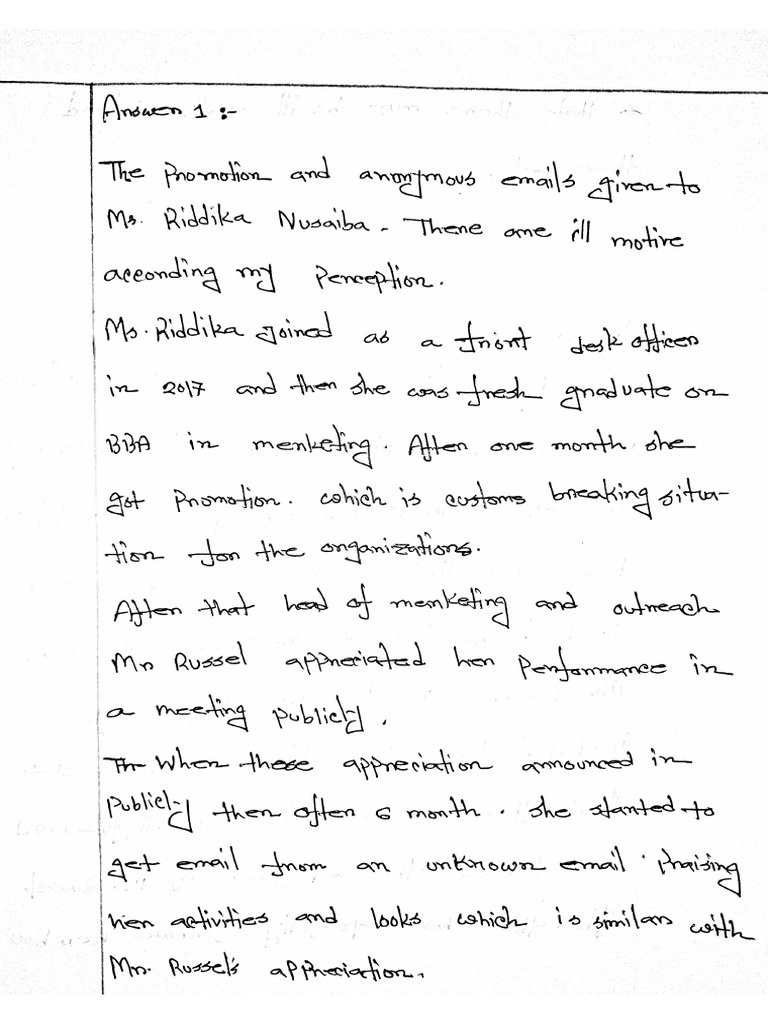 Answer 1 :-
The Promotion and anonymous emails given to
Ms. Riddika Nusaiba. There are ill motive
according my Perception.
Ms. Riddika joined as a front desk officer
in 2017 and then she was fresh graduate on
BBA in merketing. After one month she
got Promotion. which is customs breaking situa-
tion for the organizations.
After that head of merketing and outreach
Mr Russel appreciated her Performance in
a meeting publicly.
When these appreciation announced in
Publicly then after 6 month. she started to
get email from an unknown email. Praising
her activities and looks which is similar with
Mr. Russel's appreciation.